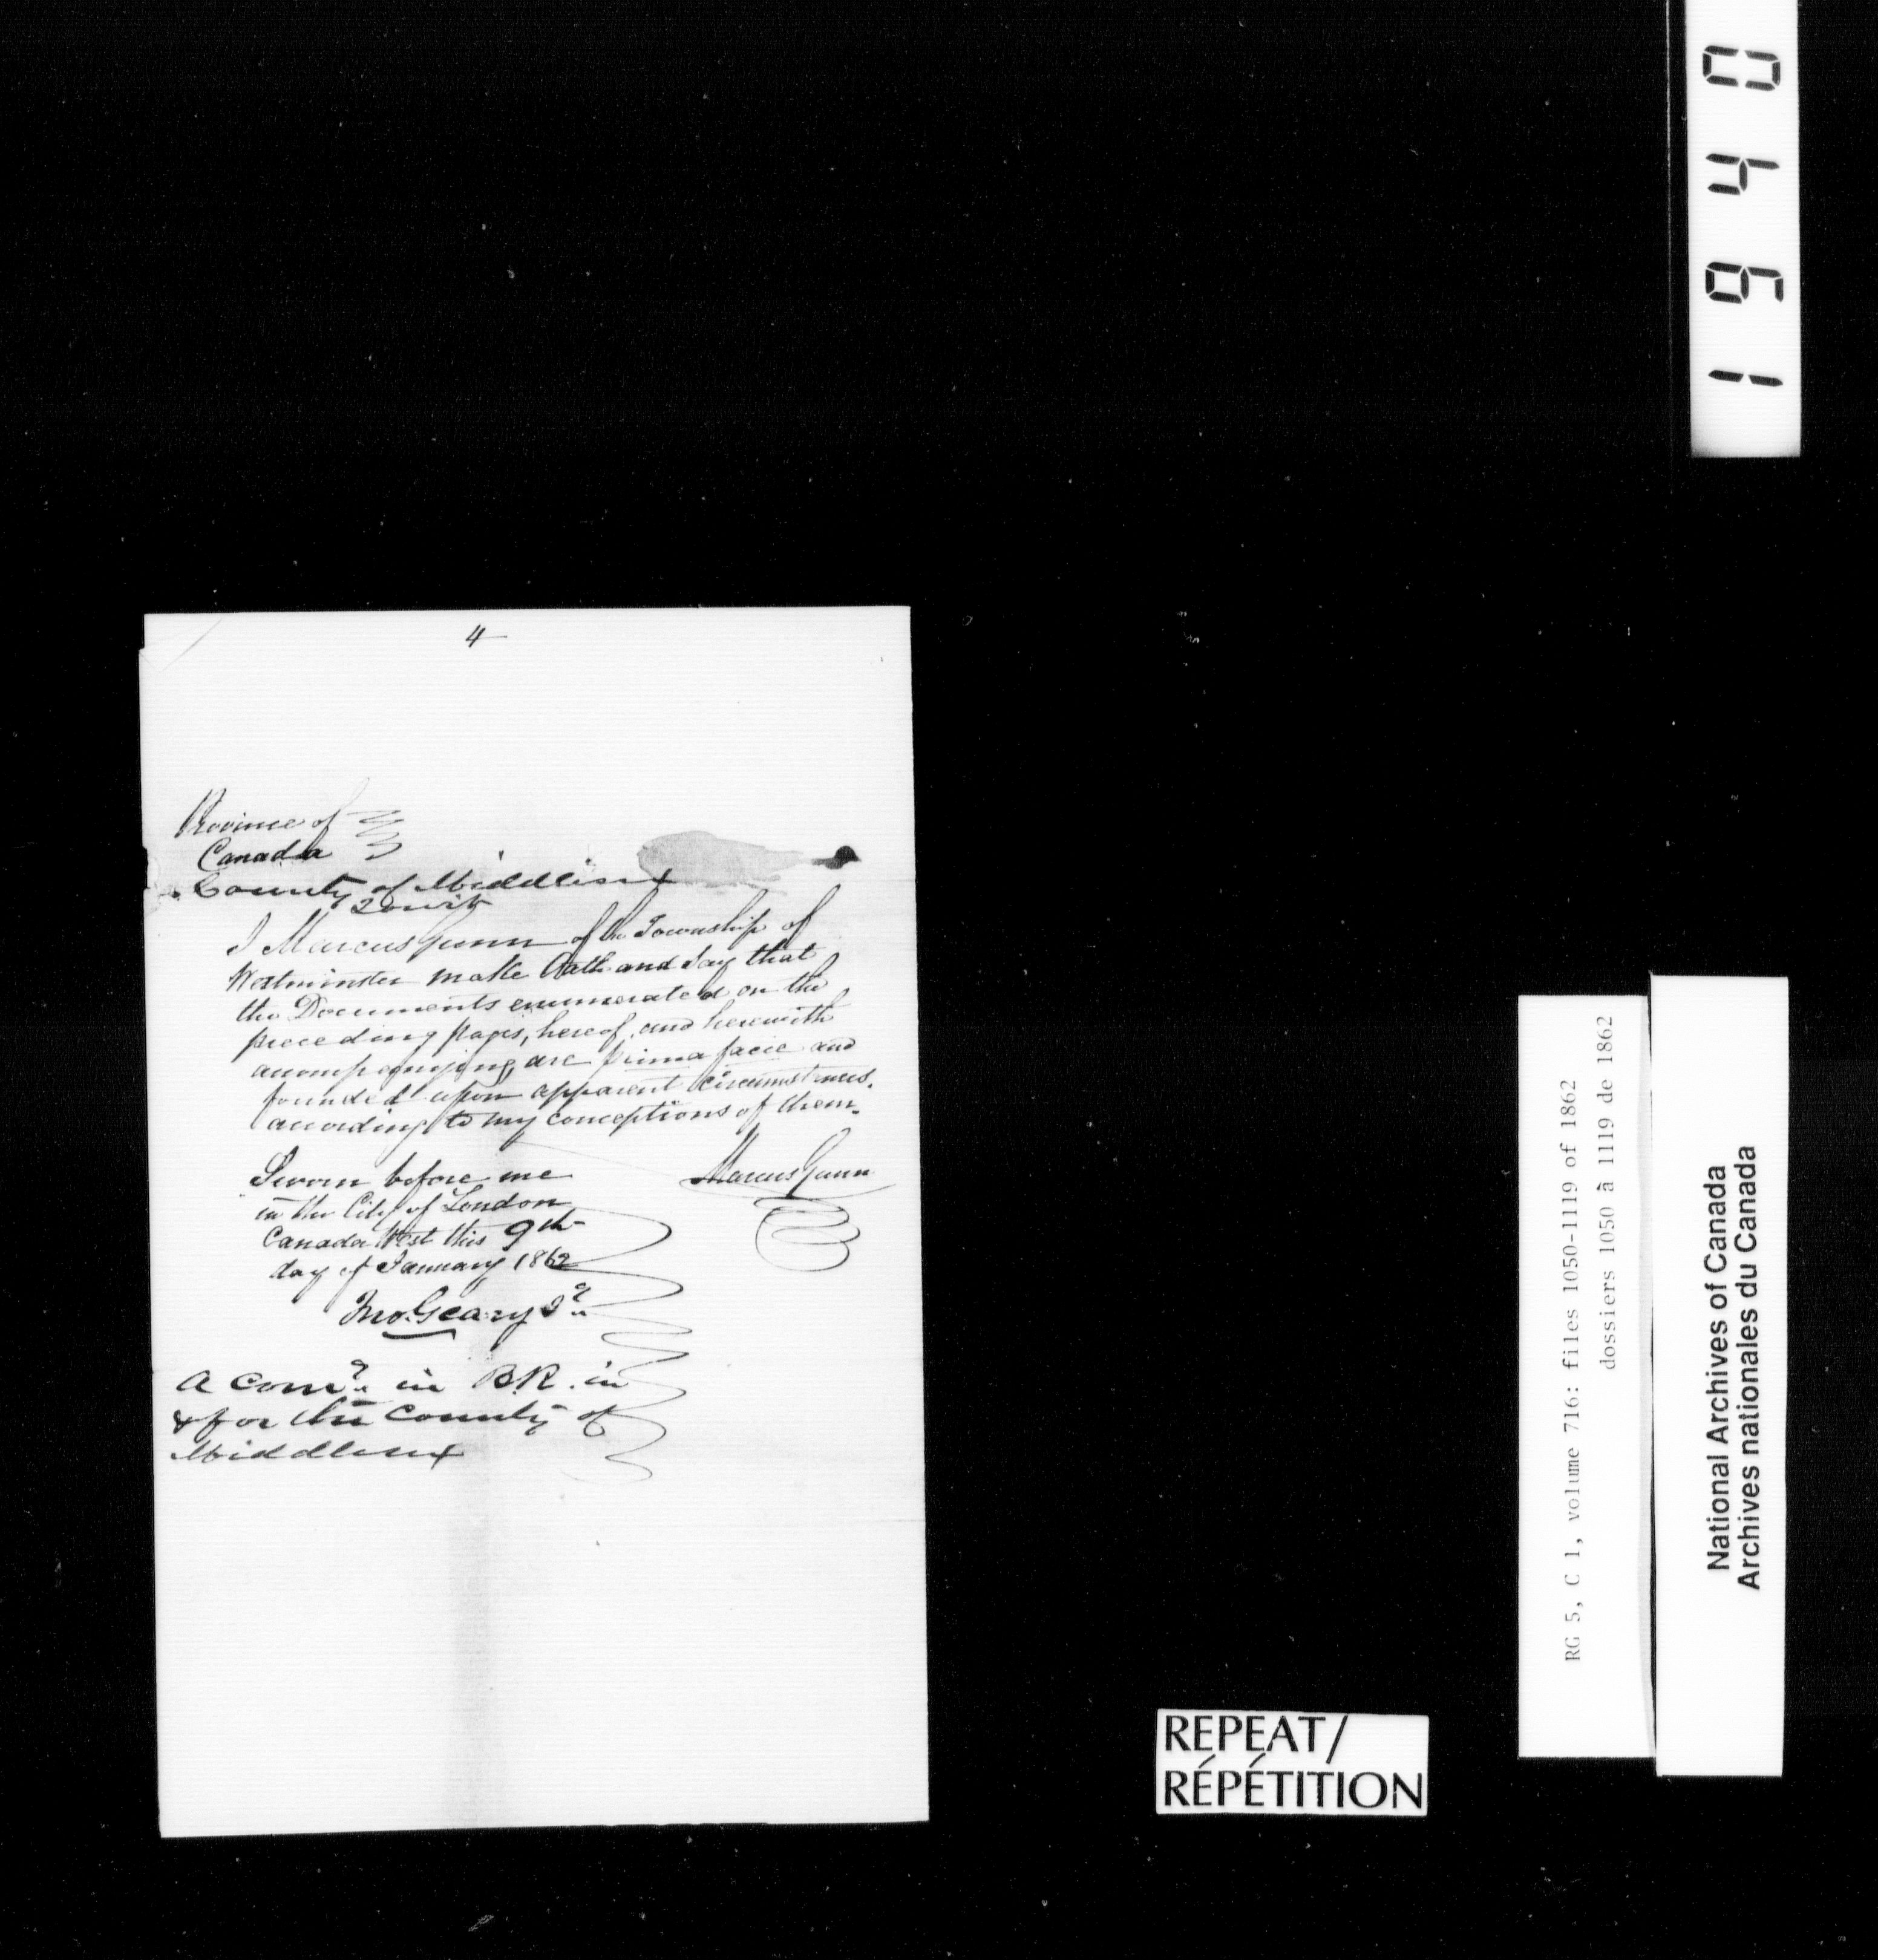 4
Province of
Canada
County of Middlesex
To wit
I Marcus Gunn of the Township of
Westminster make Oath and Say that
the Documents enumerated on the
preceding pages, hereof, and herewith
accompanying are prima facie and
founded upon apparent circumstances.
according to my conceptions of them.
Marcus Gunn
Sworn before me
in the City of London
Canada West this 9th
day of January 1862
Jno. Geary Jr
A Comr in B.R. in
& for the County of
Middlesex
1940
RG 5, C 1, volume 716: files 1050-1119 of 1862
dossiers 1050 à 1119 de 1862
National Archives of Canada
Archives nationales du Canada
REPEAT/
RÉPÉTITION